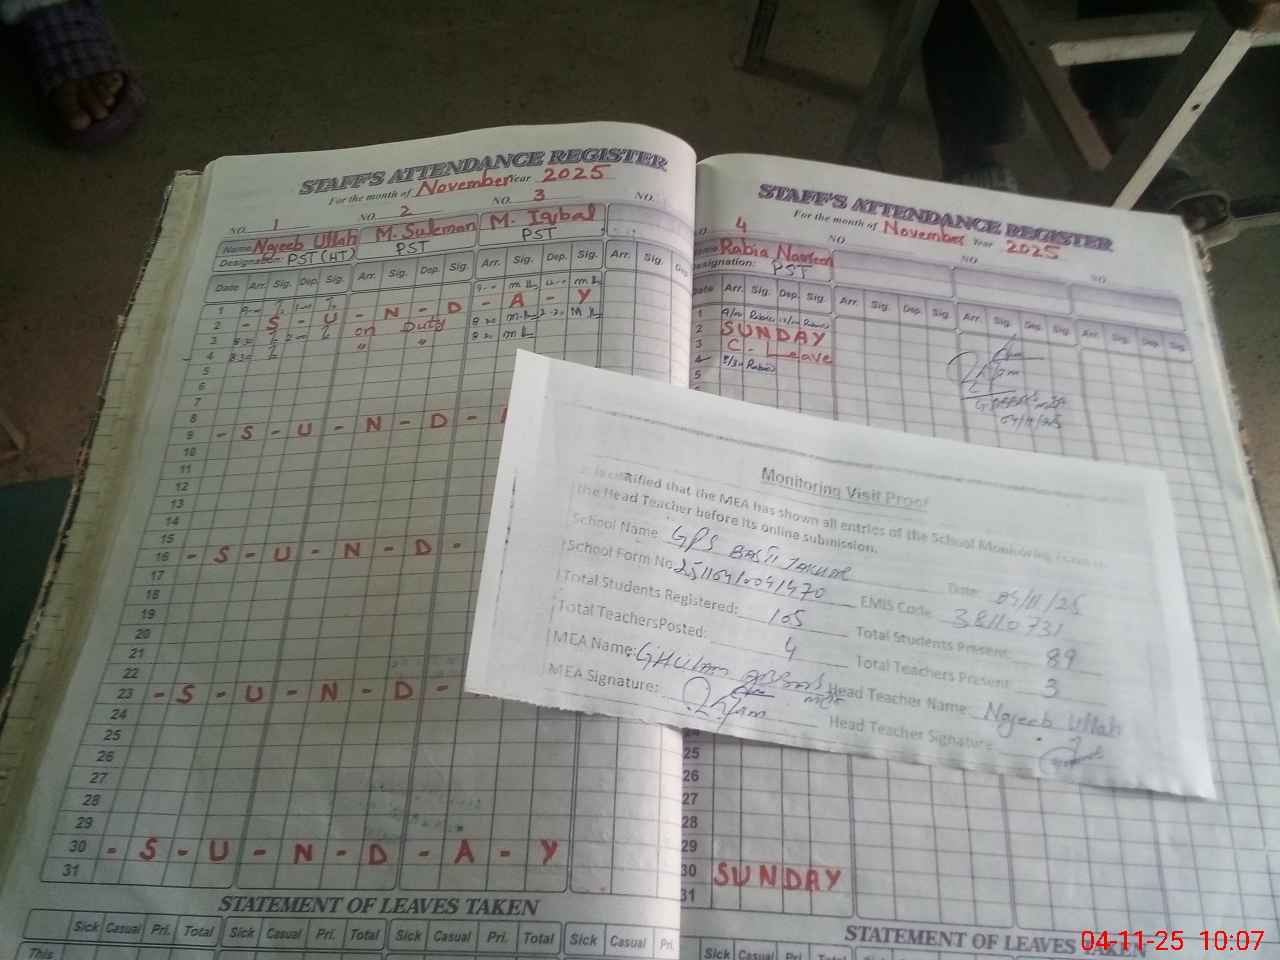 STAFF'S ATTENDANCE REGISTER
For the month of November Year 2025
NO. 1 NO. 2 NO. 3 NO.
Name: Najeeb Ullah M. Suleman M. Iqbal
Designation: PST (HT) PST PST
Date Arr. Sig. Dep. Sig. Arr. Sig. Dep. Sig. Arr. Sig. Dep. Sig. Arr. Sig. Dep
1
2 - S - U - N - D - A - Y
3 8:30 on Duty
4 8:30 " "
5
6
7
8
9 - S - U - N - D -
10
11
12
13
14
15
16 - S - U - N - D -
17
18
19
20
21
22
23 - S - U - N - D -
24
25
26
27
28
29
30 - S - U - N - D - A - Y
31
STATEMENT OF LEAVES TAKEN
Sick Casual Pri. Total Sick Casual Pri. Total Sick Casual Pri. Total Sick Casual Pri
This
STAFF'S ATTENDANCE REGISTER
For the month of November Year 2025
4 NO NO. NO.
Name: Rabia Nasreen
Designation: PST
Date Arr. Sig. Dep. Sig. Arr. Sig. Dep. Sig. Arr. Sig. Dep. Sig. Arr. Sig. Dep. Sig.
1 Rabia Rabia
2 SUNDAY
3 C - Leave
4 Rabia
5
04/11/25
Monitoring Visit Proof
certified that the MEA has shown all entries of the School Monitoring
the Head Teacher before its online submission.
School Name: GPS BASTI Date: 04/11/25
School Form No. EMIS Code: 38110731
Total Students Registered: 105 Total Students Present: 89
Total TeachersPosted: 4 Total Teachers Present: 3
MEA Name: GHULAM Head Teacher Name: Najeeb Ullah
MEA Signature: Head Teacher Signature:
25
26
27
28
29
30 SUNDAY
31
STATEMENT OF LEAVES TAKEN
Sick Casual Pri. Total Sick Casual Pri. Total
04-11-25 10:07